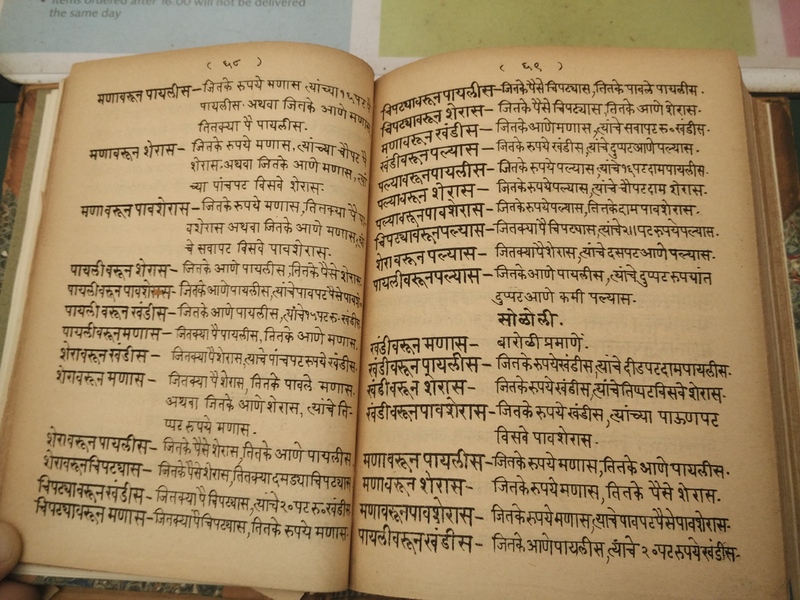 Items ordered after 16.00 will not be delivered
the same day
( ६८ )
मणावरून पायलीस—जितके रुपये मणास त्यांच्या १६ पट पै
पायलीस. अथवा जितके आणे मणास
तितक्या पै पायलीस.
मणावरून शेरास—जितके रुपये मणास, त्यांच्या चौपट पै
शेरास. अथवा जितके आणे मणास, त्यां
च्या पांचपट विसवे शेरास.
मणावरून पावशेरास—जितके रुपये मणास, तितक्या पै पा
वशेरास अथवा जितके आणे मणास, त्यां
चे सवापट विसवे पावशेरास.
पायलीवरून शेरास—जितके आणे पायलीस, तितके पैसे शेरास.
पायलीवरून पावशेरास—जितके आणे पायलीस, त्यांचे पावपट पैसे पावशे
पायलीवरून खंडीस—जितके आणे पायलीस, त्यांचे १५ पट रु. खंडीस.
पायलीवरून मणास—जितक्या पै पायलीस, तितके आणे मणास.
शेरावरून खंडीस—जितक्या पै शेरास, त्याचे पांचपट रुपये खंडीस.
शेरावरून मणास—जितक्या पै शेरास, तितके पावले मणास.
अथवा जितके आणे शेरास, त्यांचे ति-
प्पट रुपये मणास.
शेरावरून पायलीस—जितके पैसे शेरास, तितके आणे पायलीस
शेरावरून चिपट्यास—जितके पैसे शेरास, तितक्या दमड्या चिपट्यास
चिपट्यावरून खंडीस—जितक्या पै चिपट्यास, त्यांचे २० पट रु. खंडीस
चिपट्यावरून मणास—जितक्या पै चिपट्यास, तितके रुपये मणास.
( ६९ )
चिपट्यावरून पायलीस—जितके पैसे चिपट्यास, तितके पावले पायलीस.
चिपट्यावरून शेरास—जितके पैसे चिपट्यास, तितके आणे शेरास.
मणावरून खंडीस—जितके आणे मणास, त्यांचे सवापट रु० खंडीस.
खंडीवरून पल्यास—जितके रुपये खंडीस, त्यांचे दुप्पट आणे पल्यास.
पल्यावरून पायलीस—जितके रुपये पल्यास, त्यांचे १६ पट दाम पायलीस.
पल्यावरून शेरास—जितके रुपये पल्यास, त्यांचे चौपट दाम शेरास.
पल्यावरून पावशेरास—जितके रुपये पल्यास, तितके दाम पावशेरास.
चिपट्यावरून पल्यास—जितक्या पै चिपट्यास, त्यांचे २॥ पट रुपये पल्यास.
शेरावरून पल्यास—जितक्या पै शेरास, त्यांचे दसपट आणे पल्यास.
पायलीवरून पल्यास—जितके आणे पायलीस, त्यांचे दुप्पट रुपयांत
दुप्पट आणे कमी पल्यास.
सोळोली.
खंडीवरून मणास—बारोळी प्रमाणें.
खंडीवरून पायलीस—जितके रुपये खंडीस, त्यांचे दीडपट दाम पायलीस.
खंडीवरून शेरास—जितके रुपये खंडीस, त्यांचे तिप्पट विसवे शेरास.
खंडीवरून पावशेरास—जितके रुपये खंडीस, त्यांच्या पाऊणपट
विसवे पावशेरास.
मणावरून पायलीस—जितके रुपये मणास, तितके आणे पायलीस.
मणावरून शेरास—जितके रुपये मणास, तितके पैसे शेरास.
मणावरून पावशेरास—जितके रुपये मणास, त्यांचे पावपट पैसे पावशेरास.
पायलीवरून खंडीस—जितके आणे पायलीस, त्यांचे २० पट रुपये खंडीस.